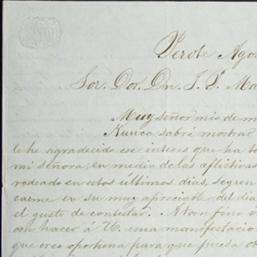 Perote Ago
Sor. Dor. Dn. J. I. Ma
Muy señor mio de m
Nunca sabré mostrar
le he agradecido ese interes que ha to
mi señora, en medio de las aflictivas
rodeado en estos últimos dias, segun
carme en su muy apreciable del dia
el gusto de contestar. Aton fino
con hacer á V. una manifestacion
que crei oportuna para que pueda ob